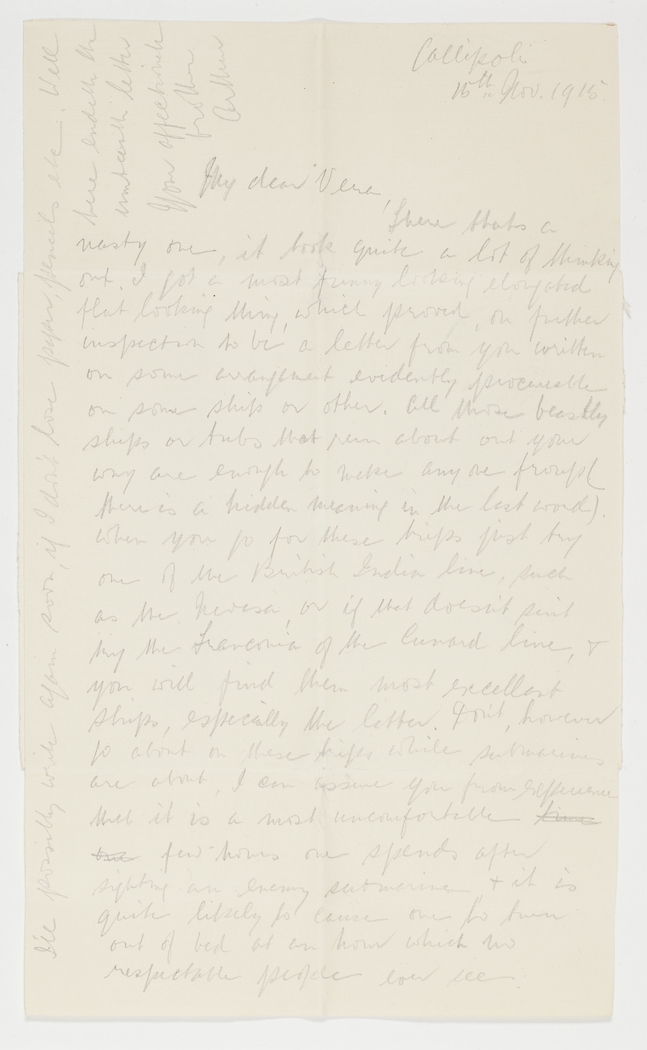 Gallipoli
15th Nov. 1915
My dear Vena,
There thats a
nasty one, it took quite a lot of thinking
out. I got a most funny looking elongated
flat looking thing, which proved, on further
inspection to be a letter from you written
on some arrangement evidently procurable
on some ship or other. All those beastly
ships or tubs that run about out your
way are enough to make anyone froup (
there is a hidden meaning in the last word).
When you go for these trips just try
one of the British India line, such
as the Nevasa, or if that doesn't suit
try the Franconia of the Cunard line, &
you will find them most excellent
ships, especially the latter. Don't, however
go about on these trips while submarines
are about, I can assure you from experience
that it is a most uncomfortable time
few hours one spends after
sighting an enemy submarine & it is
quite likely to cause one to turn
out of bed at an hour which no
respectable people ever see.
I'll possibly write again soon, if I don't lose paper, pencils etc. Well
here endeth the
umteenth letter
Your affectionate
brother
Arthur